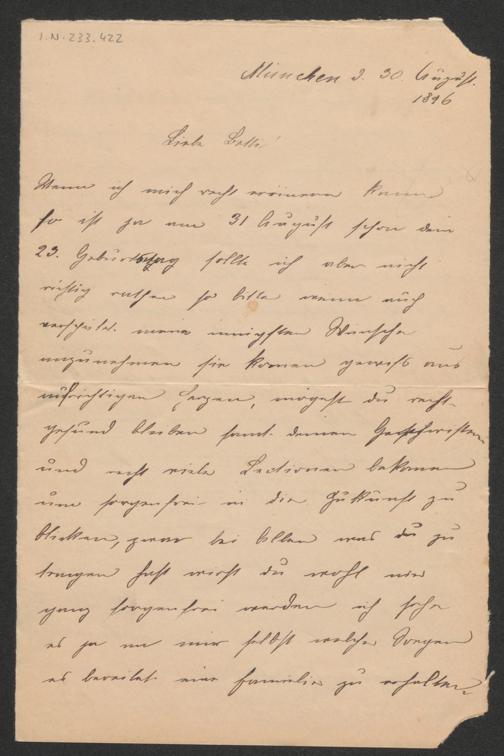 I.N. 233.422
München d. 30. August.
1896
Liebe Betti!
Wenn ich mich recht erinnern kann
so ist ja am 31 August schon dein
23. Geburtstag sollte ich aber nicht
richtig rathen so bitte wenn auch
verspätet meine innigsten Wünsche
anzunehmen sie komen gewiß aus
aufrichtigen Herzen, mögest du recht
gesund bleiben samt deinen Geschwistern
und recht viele Lectionen bekomen
um sorgenfrei in die Zukunft zu
blicken, zwar bei Allem was du zu
tragen hast wirst du wohl nie
ganz sorgenfrei werden ich sehe
es ja an mir selbst welche Sorgen
es bereitet eine Familie zu erhalten